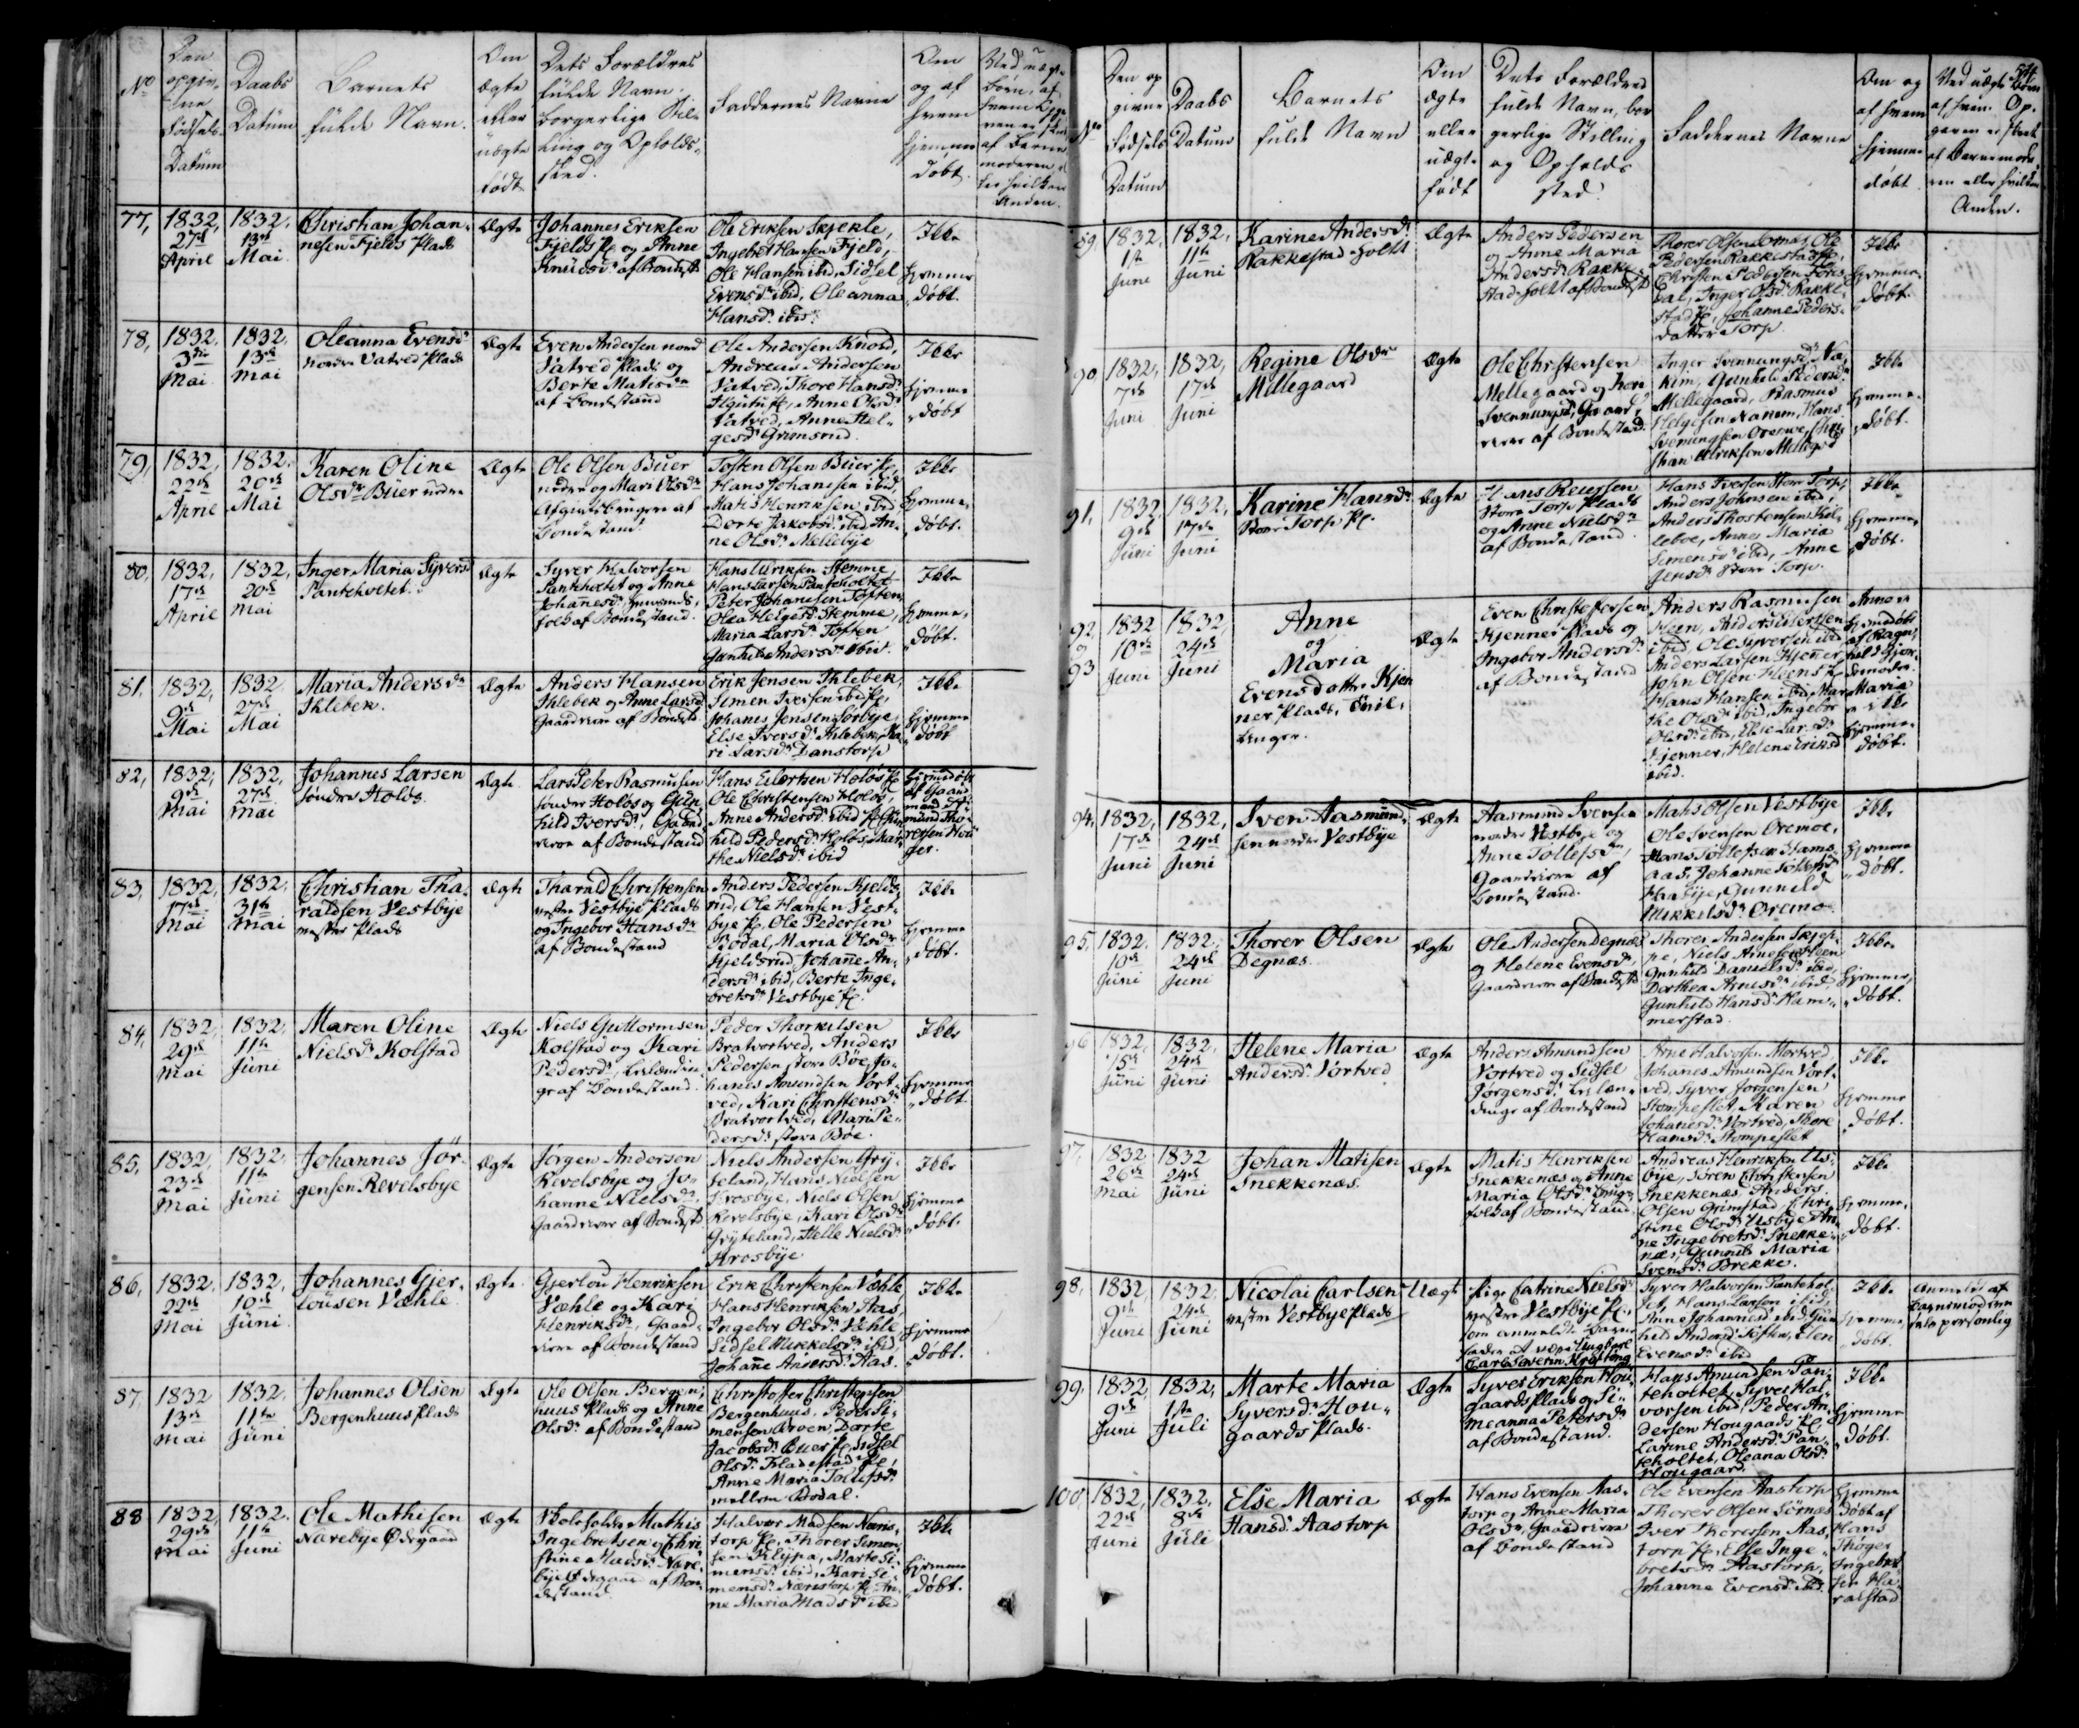 No
Den opgivne Fødsels Datum
Daabs Datum
Barnets fulde Navn.
Om ægte eller uægte født
Dets Forældres fulde Navn, borgerlige Stilling og Opholdssted.
Faddernes Navne
Om og af hvem hjemmedøbt.
77, 1832, 27de April
1832, 13de Mai
Christian Johannesen Fjelds Plads
Ægte
Johannes Eriksen
Fjelds Pl. og Anne
Knudsdr. af Bondest.
Ole Eriksen Skjekle,
Ingebret Hansen Fjeld,
Ole Hansen ibid, Sidsel
Evensdr. ibid, Oleanna
Hansdr. ibid.
Ikke hjemmedøbt.
78, 1832, 3die Mai
1832, 13de Mai
Oleanna Evensdr.
nordre Vatved Plads
Ægte
Even Andersen nord
Vatved Plads og
Berte Matisdr.
af Bondestand
Ole Andersen Knold,
Andreas Andersen
Vatved, Thore Hansdr.
Pl., Anne Olsdr.
Vatved, Anne Helgesdr. Grimsrud.
Ikke hjemmedøbt
79, 1832, 22de April
1832, 20de Mai
Karen Oline
Olsdr. Büer nedre
Ægte
Ole Olsen Büer
nedre og Mari Olsdr.
af
Bondestand.
Tosten Olsen Büer Pl.,
Hans Johansen ibid,
Matis Henriksen ibid
Dorte Jakobsdr. ibid, Anne Olsdr. Mellebye
Ikke hjemmedøbt.
80, 1832, 17de April
1832, 20de Mai
Inger Maria Syversdr.
Panteholtet.
Ægte
Syver Halvorsen
Panteholtet og Anne
Johannesdr.
af Bondestand.
Hans Ulriksen Stemme
Hans Larsen Panteholtet
Peter Johannesen Toften,
Olea Helgesdr. Stemme,
Maria Larsdr. Toften
Gunhild Andersdr. ibid.
Ikke hjemmedøbt.
81, 1832, 9de Mai
1832, 27de Mai
Maria Andersdr.
Ihlebek.
Ægte
Anders Hansen
Ihlebek og Anne Larsdr.
Gaardeiere af Bondest.
Erik Jensen Ihlebek,
Simen Iversen ibid Pl.,
Johanes Jensen Sørbye,
Else Iversdr. Ihlebek, Kari Larsdr. Danstorp
Ikke hjemmedøbt
82, 1832, 9de Mai
1832, 27de Mai
Johannes Larsen
søndre Holøs.
Ægte
Lars Peter Rasmusen
søndre Holøs og Gunhild Iversdr., Gaardeiere af Bondestand
Hans Eilertsen Holøs Pl.
Ole Christensen Holøs,
Anne Andersdr. ibid Pl., Gunhild Pedersdr. Holøs, Marthe Nielsdr. ibid
83, 1832, 17de Mai
1832, 31te Mai
Christian Tharaldsen Vestbye
mestre Plads
Ægte
Tharald Christensen
vestre Vestbye Plads
og Ingebor Hansdr.
af Bondestand
Anders Pedersen Kjeldsrud, Ole Hansen Vestbye Pl. Ole Pedersen
Bodal, Maria Olsdr.
Kjeldsrud, Johane Andersdr. ibid, Berte Ingebretsdr. Vestbye Pl.
Ikke hjemmedøbt.
84, 1832, 29de Mai
1832, 11te Juni
Maren Oline
Nielsdr. Kolstad
Ægte
Niels Guttormsen
Kolstad og Kari
Pedersdr.,
af Bondestand.
Peder Thorkilsen
Bratvortved, Anders
Pedersen store Boe, Johanes Amundsen Vortved, Kari Christensdr.
Bratvortved, Mari Pedersdr. store Bøe.
Ikke hjemmedøbt.
85, 1832, 23de Mai
1832, 11te Juni
Johannes Jørgensen Revelsbye
Ægte
Jørgen Andersen
Revelsbye og Johanne Nielsdr.
Gaardeiere af Bondest.
Niels Andersen Gryteland, Hans Nielsen
Krosbye, Niels Olsen
Revelsbye, Kari Olsdr.
Gryteland, Helle Nielsdr.
Krosbye
Ikke hjemmedøbt.
86, 1832, 22de Mai
1832, 10de Juni
Johannes Gjerlousen Væhle.
Ægte
Gjerlou Henriksen
Væhle og Kari
Henriksdr., Gaardeiere af Bondestand
Erik Christensen Væhle
Hans Henriksen Aas,
Ingebor Olsdr. Væhle
Sidsel Mikkelsdr. ibid,
Johane Andersdr. Aas.
Ikke hjemmedøbt.
87, 1832 13de Mai
1832, 11te Juni
Johannes Olsen
Bergenhuus Plads
Ægte
Ole Olsen Bergenhuus Plads og Anne
Olsdr. af Bondestand
Christoffer Christensen
Bergenhuus, Peder Simensen Broen, Dorte
Jacobsdr. Buer Pl., Sidsel
Olsdr. Fladestad Pl.,
Anne Maria Tollefsdr.
mellem Bodal.
88 1832, 29de Mai
1832, 11te Juni
Ole Mathisen
Nærebye Ødegaard
Ægte
Skoleholder Mathis
Ingebretsen og Christine Madsdr. Nærebye Ødegaard af Bondestand.
Halvor Madsen Næristorp Pl., Thorer Simensen Klypa, Marte Simensdr. ibid, Kari Simensdr. Næristorp Pl. Anne Maria Madsdr. ibid
Ikke hjemmedøbt.
54
No
Den opgivne Fødsels Datum
Daabs Datum
Barnets fulde Navn
Om ægte eller uægte født
Dets Forældres fulde Navn, borgerlige Stilling og Opholdssted.
Faddernes Navne
Om og af hvem hjemmedøbt
89, 1832, 1ste Juni
1832, 11te Juni
Karine Andersdr.
Rakkestad Holtt
Ægte
Anders Pedersen
og Anne Maria
Andersdr. Rakkestad Holtt af Bondest.
Pedersen Rakkestad Pl.,
Christen Pedersen
Inger Olsdr. Rakkestad Pl., Johanne Pedersdatter Torp
Ikke hjemmedøbt.
90 1832, 7de Juni
1832, 17de Juni
Regine Olsdr.
Millegaard
Ægte
Ole Christensen
Mellegaard og
Svennungsdr., Gaardeiere af Bondestand.
Inger Svennungsdr.
Gunhild Pedersdr.
Mellegaard, Rasmus
Helgesen Narum, Hans
Svenungsen Oremoe, Christian Ulriksen Millegd.
Ikke hjemmedøbt.
91, 1832, 9de Juni
1832, 17de Juni
Karine Hansdr.
Store Torp Pl.
Ægte
Hans Reiersen
Store Torp Plads
og Anne Nielsdr.
af Bondestand
Hans Iversen Store Torp,
Anders Johnsen ibid,
Anders Thostensen
Anne Maria
Simensdr. ibid, Anne
Jensdr. Store Torp.
Ikke hjemmedøbt.
92, og 93 1832 10de Juni
1832, 24de Juni
Anne
og
Maria
Evensdottre Kjenner Plads,
Ægte
Even Christofersen
Kjenner Plads og
Ingebor Andersdr.
af Bondestand
Anders Rasmusen
Heen, Anders Eilertsen
ibid, Ole Syversen ibid
Anders Larsen Kjener
John Olsen Heens Pl.
Hans Hansen ibid, Marthe Olsdr. ibid, Ingebor
Olsdr. ibid, Else Larsdr.
Kjenner, Helene Eriksd.
ibid.
Maria
ikke
hjemmedøbt.
94, 1832, 17de Juni
1832, 24de Juni
Sven Aasmundsen nordre Vestbye
Ægte
Aasmund Svensen
nordre Vestbye og
Anne Tollefsdr.,
Gaardeiere af
Bondestand.
Matis Olsen Vestbye
Ole Svensen Oremoe,
Hans Tollefsen
Johanne Tollefsdr.
Gunnild
Mikkelsdr. Oremo
Ikke hjemmedøbt.
95, 1832, 10de Juni
1832, 24de Juni
Thorer Olsen
Degnæs
Ægte
Ole Andersen Degnæs
og Helene Evensdr.
Gaardeiere af Bondest.
Thorer Andersen Skjeppe, Niels Arnesen Heen
Gunhild Danielsdr. ibid,
Dorthea Arnesdr. ibid,
Gunhild Hansdr. Hammerstad.
Ikke hjemmedøbt.
96 1832, 15de Juni
1832, 24de Juni
Helene Maria
Andersdr. Vortved
Ægte
Anders Amundsen
Vortved og Sidsel
Jørgensdr.
af Bondestand
Arne Halvorsen Mortved,
Johanes Amundsen Vortved, Syver Jørgensen
Stompeslet, Karen
Johanesdr. Vortved, Thore
Hansdr. Stompeslet
Ikke hjemmedøbt.
97, 1832 26de Mai
1832 24de Juni
Johan Matisen
Snekkenæs.
Ægte
Matis Henriksen
Snekkenæs og Anne
Maria Olsdr.
af Bondestand.
Andreas Henriksen Usbye, Søren Christensen
Snekkenæs, Anders
Olsen Grimstad, Christine Olsdr. Usbye, Anne Ingebretsdr. Snekkenæs, Gunnild Maria
Svensdr. Brekke.
Ikke hjemmedøbt.
98, 1832, 9de Juni
1832, 24de Juni
Nicolai Carlsen
vestre Vestbye Plads
Uægte
Pige Catrine Nielsdr.
vestre Vestbye Pl.,
som anmeldte Barnefader
Carl Severin
Syver Halvorsen Panteholtet, Hans Larsen ibid,
Anne Johannesd. ibid, Gunhild Andersd. Toften, Elen
Evensdr. ibid
Ikke hjemmedøbt.
Anmeldt af
Barnemoderen
selv personlig
99, 1832, 9de Juni
1832, 1ste Juli
Marte Maria
Syversdr. Hougaards Plads.
Ægte
Syver Eriksen Hougaards Plads og Simeanna Petersdr.
af Bondestand.
Hans Amundsen Panteholtet, Syver Halvorsen ibid, Peder Andersen Hougaards Pl.
Larine Andersdr. Panteholtet, Oleana Olsdr.
Hougaard.
Ikke hjemmedøbt.
100, 1832, 22de Juni
1832, 8de Juli
Else Maria
Hansdr. Aastorp
Ægte
Hans Evensen Aastorp og Anne Maria
Olsdr., Gaardeiere
af Bondestand
Ole Evensen Aastorp
Thorer Olsen Sørnæs
Iver Thorersen Aastorp Pl., Else Ingebretsdr. Aastorp,
Johanne Evensdr. ibid.
Hjemmedøbt af
Hans
Thøger
Ingebretsen Haralstad